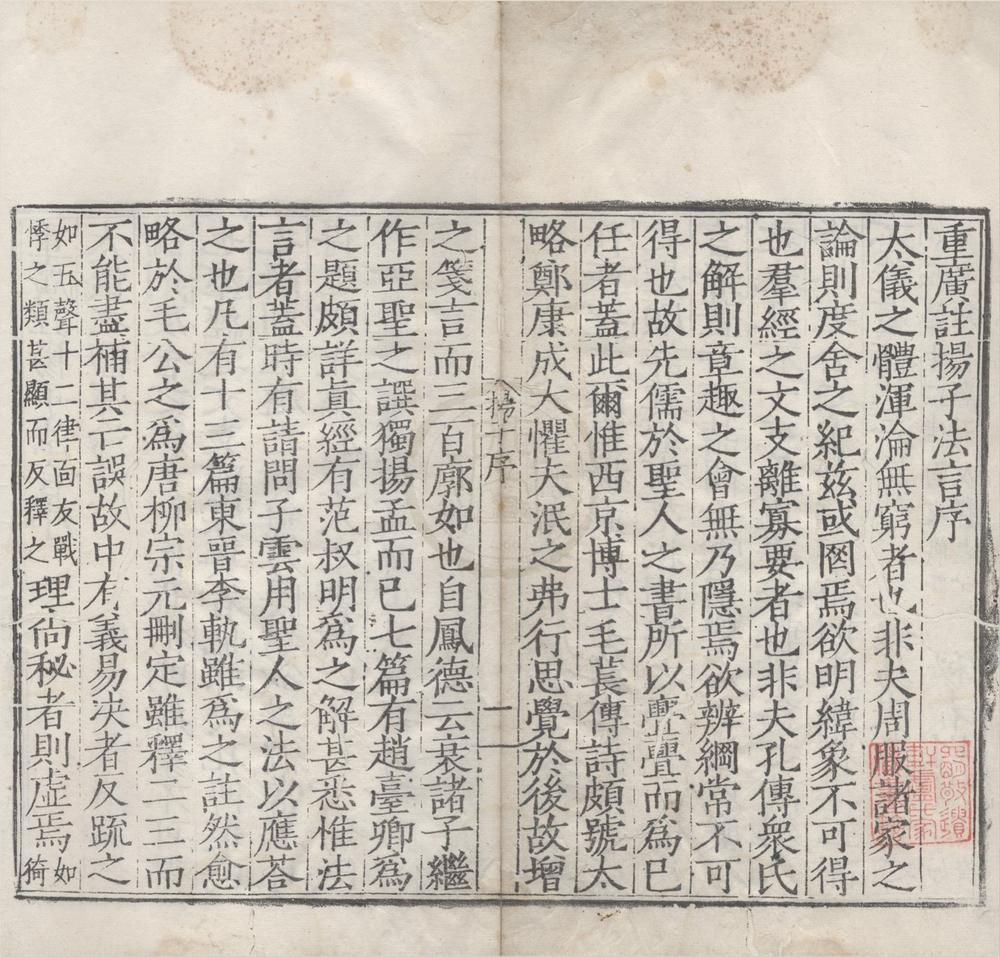 重廣註揚子法言序
太儀之體渾淪無窮者也非夫周服諸家之
論則度舍之紀茲或罔焉欲明緯象不可得
也羣經之文支離寡要者也非夫孔傳衆氏
之解則章趣之會無乃隱焉欲辨綱常不可
得也故先儒於聖人之書所以亹亹而爲已
任者蓋此爾惟西京博士毛萇傳詩頗號太
略鄭康成大懼夫泯之弗行思覺於後故增
揚子序
一
之箋言而三百廓如也自鳳德云衰諸子繼
作亞聖之譔獨揚孟而已七篇有趙臺卿爲
之題頗詳真經有范叔明爲之解甚悉惟法
言者蓋時有請問子雲用聖人之法以應荅
之也凡有十三篇東晉李軌雖爲之註然愈
略於毛公之爲唐柳宗元刪定雖釋二三而
不能盡補其亡誤故中有義易决者反疏之
如五聲十二律面友戰
悸之類甚顯而反釋之
理尚秘者則虛焉
如
犄